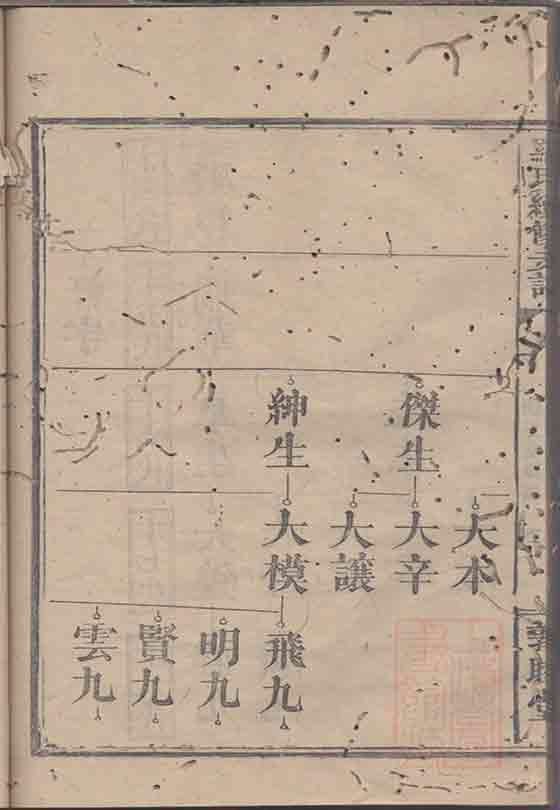 大本
傑生
大辛
大讓
紳生
大模
飛九
明九
賢九
雲九